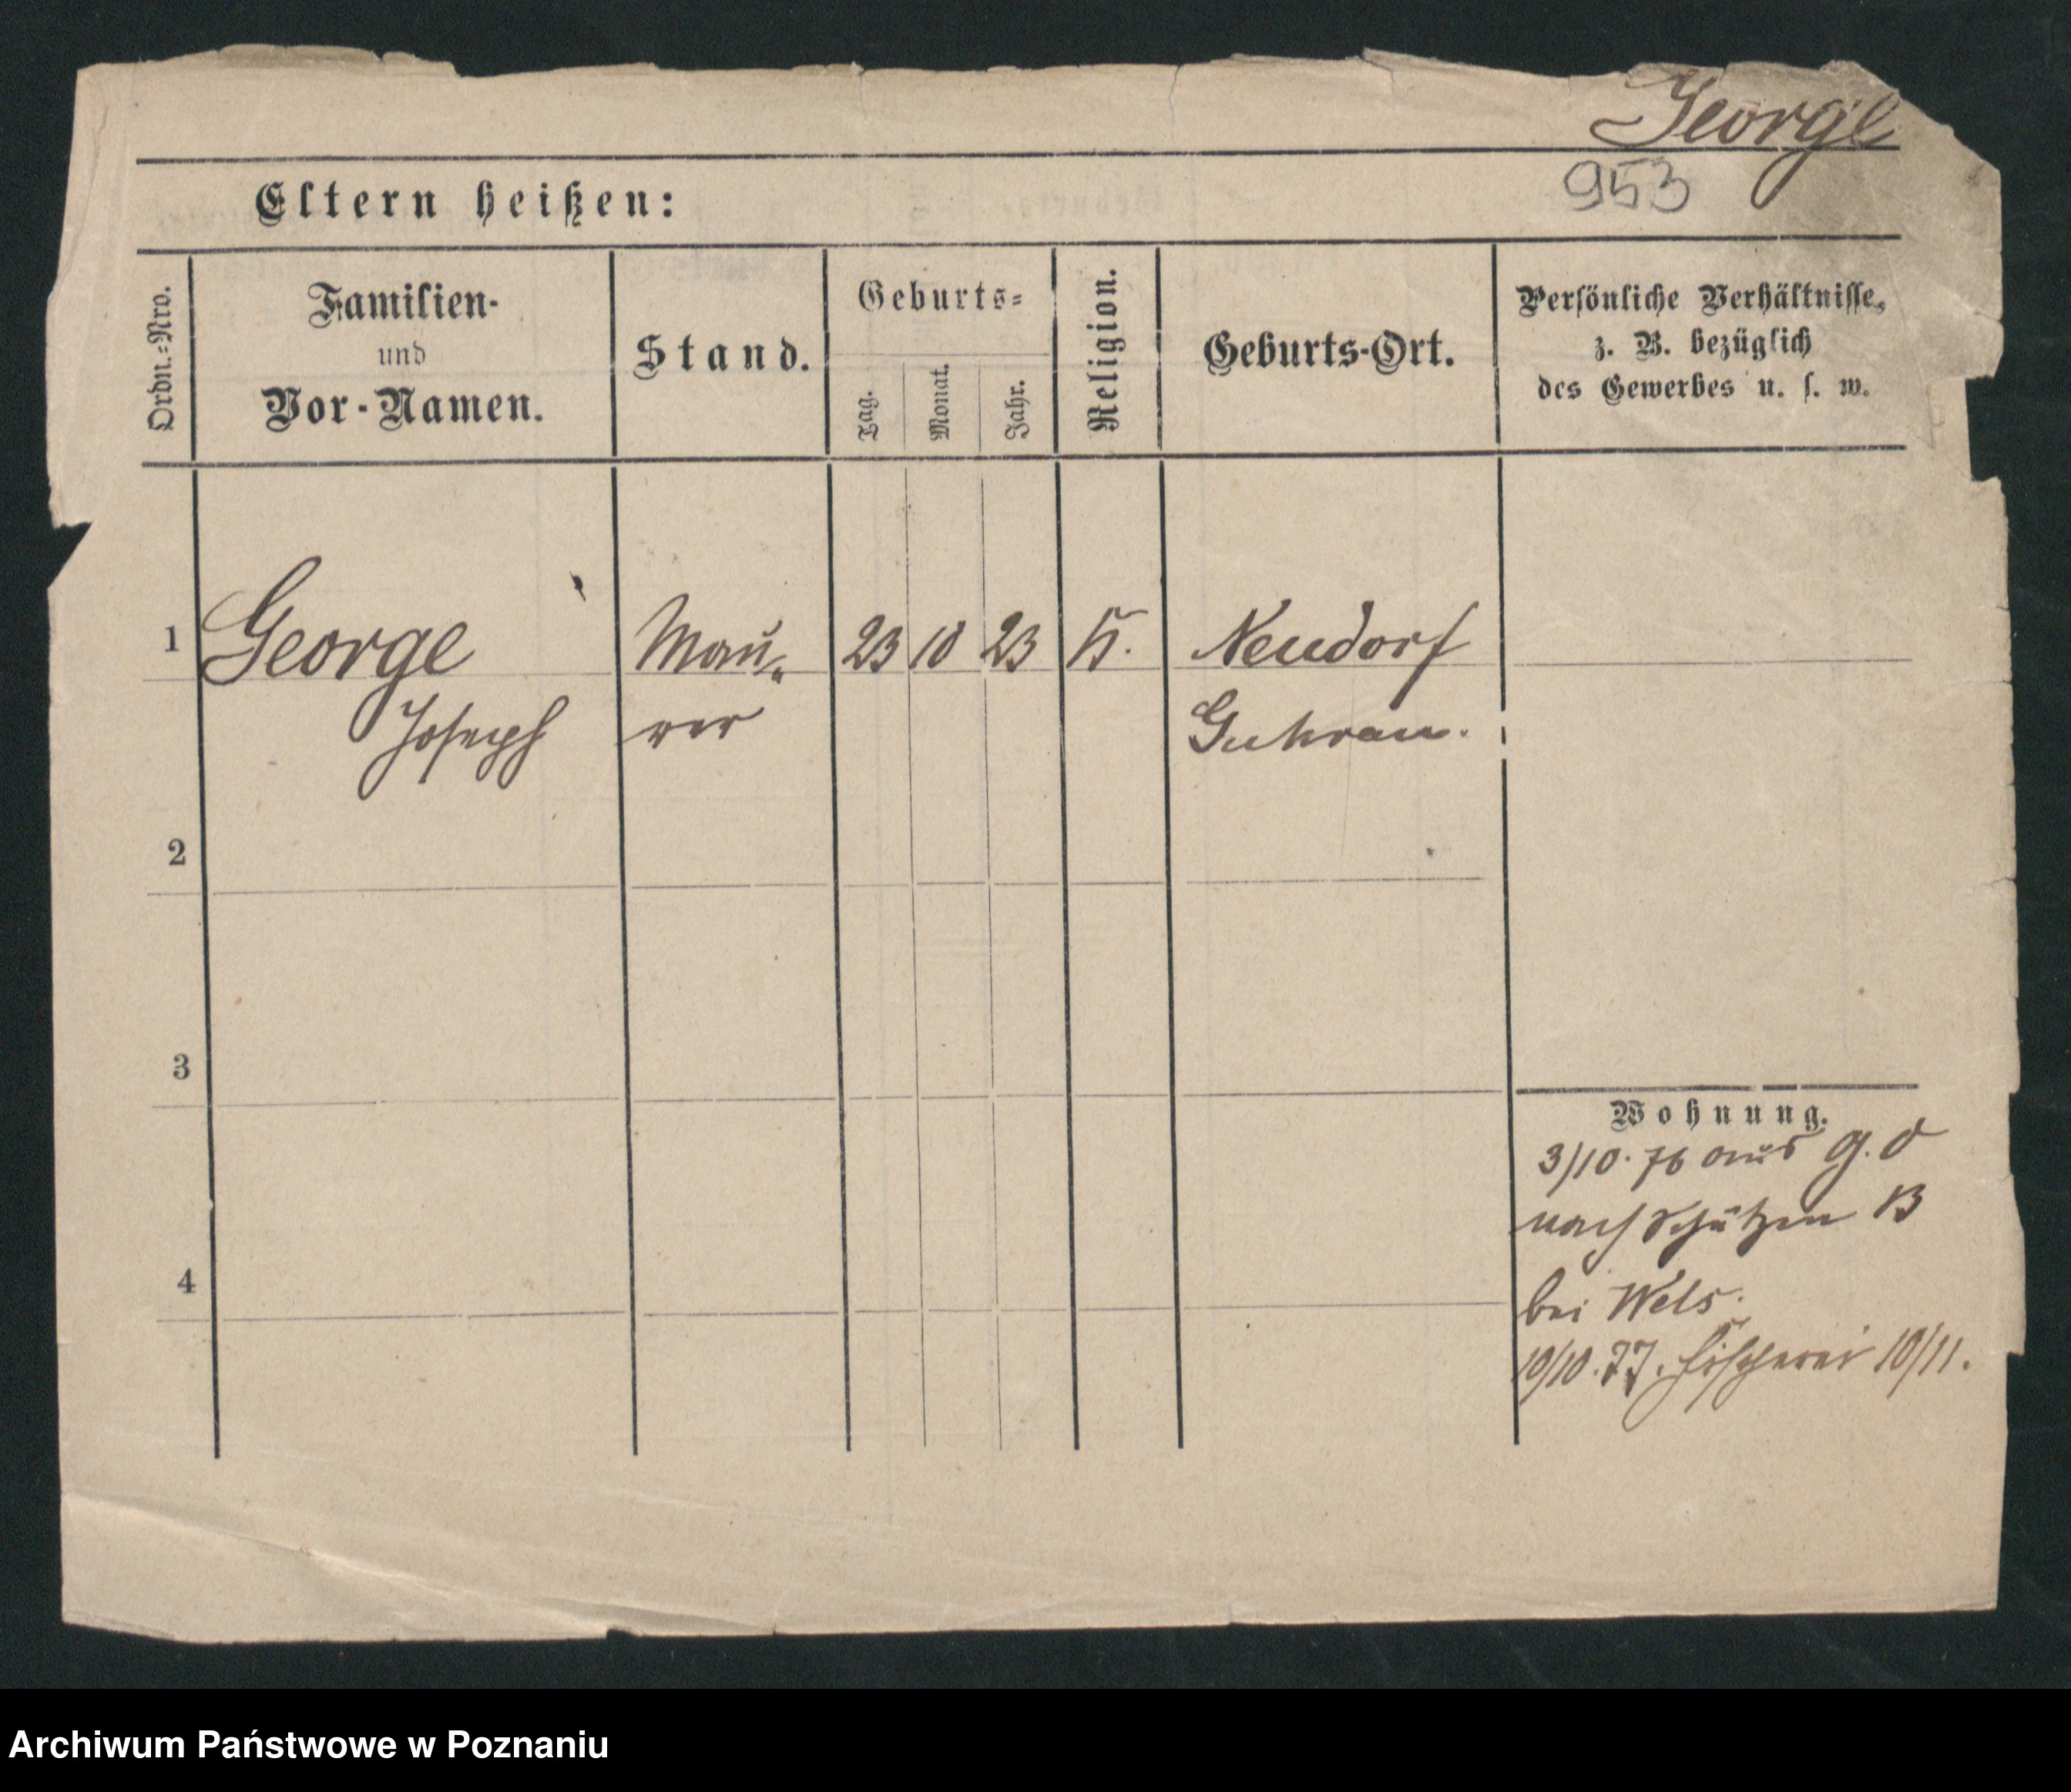 George
953
Eltern heißen:
Ordn.=Nro.
Familien-
und
Vor-Namen.
Stand.
Geburts=
Tag.
Monat.
Jahr.
Religion.
Geburts-Ort.
Persönliche Verhältnisse,
z. B. bezüglich
des Gewerbes u. s. w.
1 George Mau= 23 10 23 k. Neudorf
Joseph rer Guhrau.
2
3
4
Wohnung.
3/10. 76 aus g. d
nach Schützen 13
bei Wels.
10/10. 77. Fischerei 10/11.
Archiwum Państwowe w Poznaniu